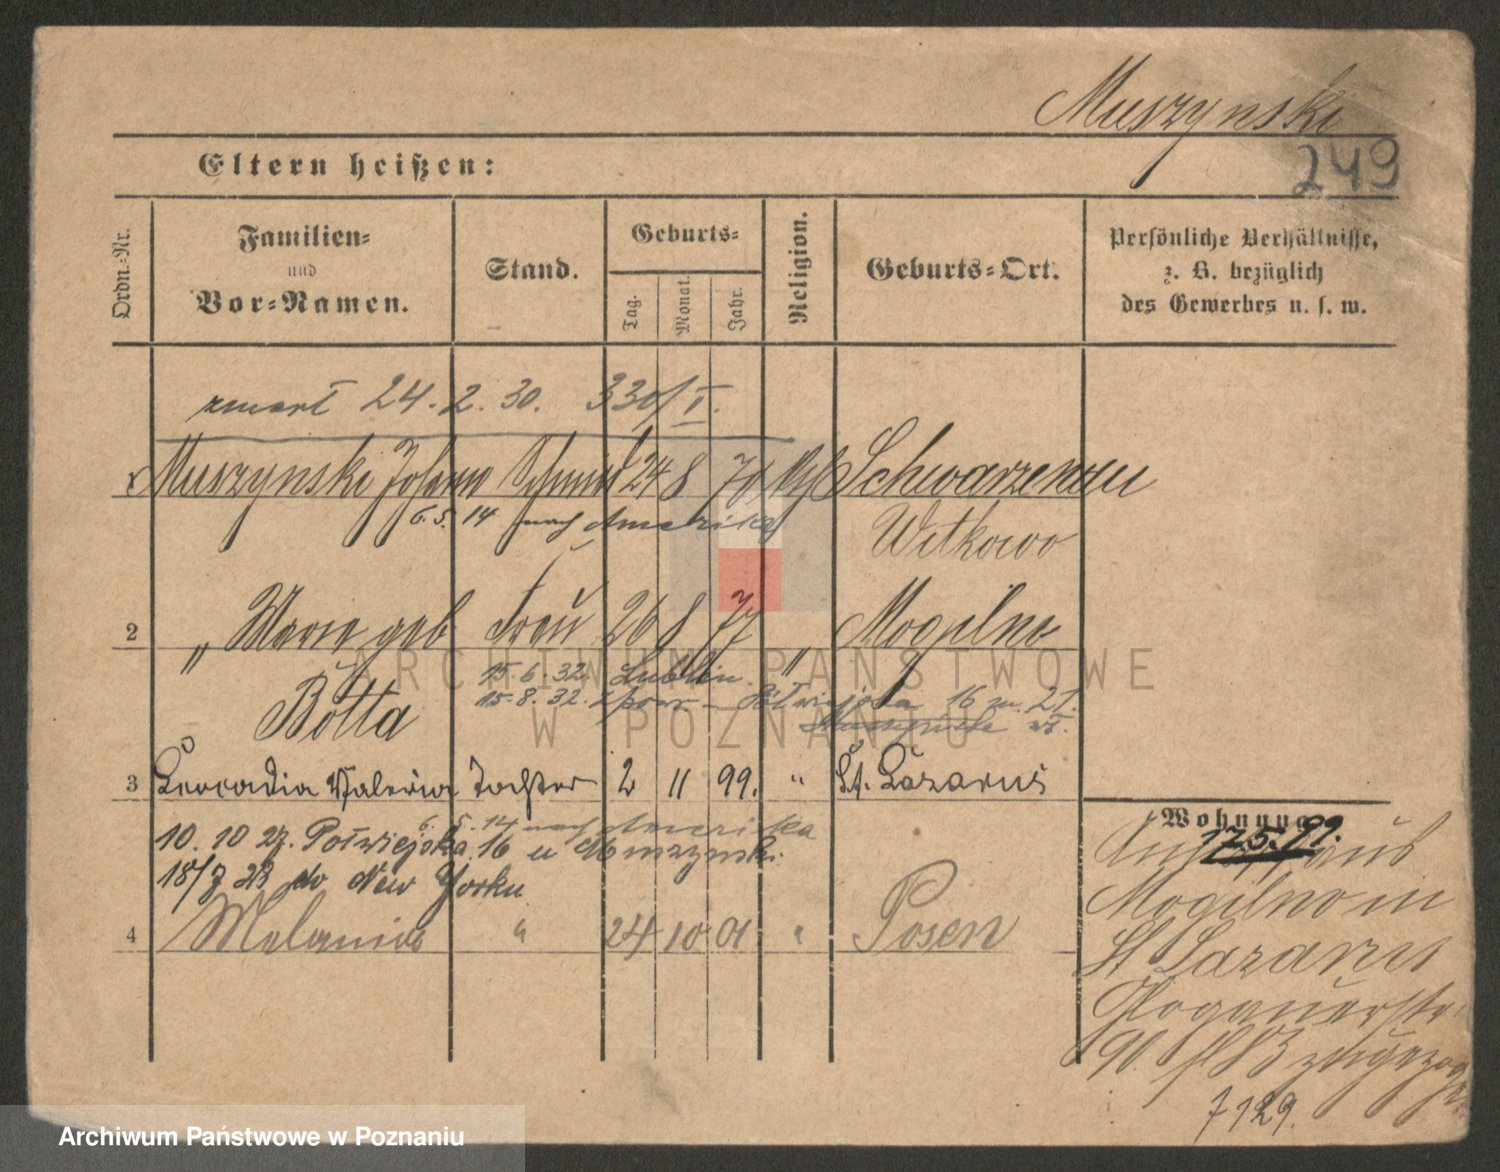 Muszynski
249
Eltern heißen:
Ordn.-Nr.
Familien-
und
Vor-Namen.
Stand.
Geburts-
Tag.
Monat.
Jahr.
Religion.
Geburts-Ort.
Persönliche Verhältnisse,
z. B. bezüglich
des Gewerbes u. s. w.
zmarł 24.2.30. 330/V.
1 Muszynski Johann 24 8 70 Schwarzenau
6.5.14 nach Amerika
Witkowo
2 " Marie geb Frau 26 8 77 " Mogilno
Botta
15.6.32 Lublin
15.8.32. Półwiejska 16 m. 21.
3 Leocadia Valeria Tochter 2 11 99. " St. Lazarus
6.5.14 nach Amerika
10.10 Półwiejska 16 u Muszynski
18/7 23 do New Yorku
4 " 24 10 01 " Posen
Wohnung
17.5.99.
aus
Mogilno in
St Lazarus
Glogauerstr.
90. zugezogen
7129.
ARCHIWUM PAŃSTWOWE
W POZNANIU
Archiwum Państwowe w Poznaniu